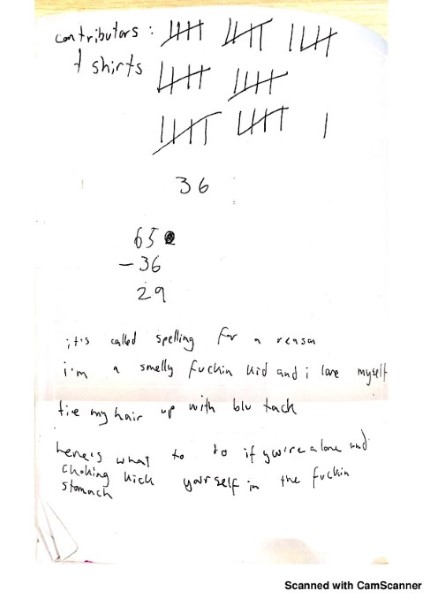 contributors :
t shirts
36
65
-36
29
it's called spelling for a reason
i'm a smelly fuckin kid and i love myself
tie my hair up with blu tack
here's what to do if you're alone and
choking kick yourself in the fuckin
stomach
Scanned with CamScanner